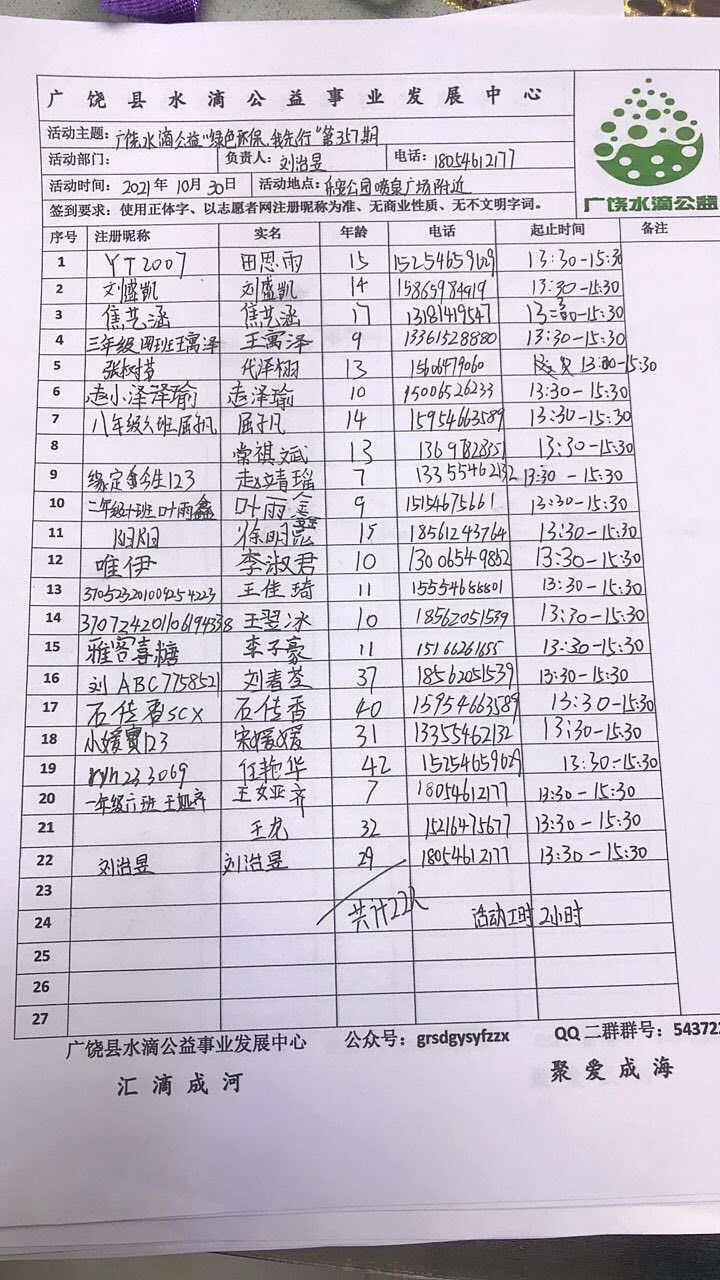 广饶县水滴公益事业发展中心
活动主题：广饶水滴公益"绿色环保,我先行"第357期
活动部门： 负责人：刘治昱 电话：18054612177
活动时间：2021年10月30日 活动地点：乐安公园喷泉广场附近
签到要求：使用正体字、以志愿者网注册昵称为准、无商业性质、无不文明字词。
广饶水滴公益
序号 注册昵称 实名 年龄 电话 起止时间 备注
1 YT2007 田思雨 15 15254659629 13:30-15:30
2 刘盛凯 刘盛凯 14 15865984919 13:30-15:30
3 焦艺涵 焦艺涵 17 13181419547 13:30-15:30
4 三年级四班王寓泽 王寓泽 9 13361528880 13:30-15:30
5 张树苗 代泽栩 13 13:30-15:30
6 赵小泽泽瑜 赵泽瑜 10 15006526233 13:30-15:30
7 八年级六班屈子凡 屈子凡 14 15954663589 13:30-15:30
8 常祺斌 13 13:30-15:30
9 缘定今生123 赵靖瑶 7 13355462132 13:30-15:30
10 二年级十班叶雨鑫 叶雨鑫 9 15154675661 13:30-15:30
11 阳阳 徐明昆 15 18561243764 13:30-15:30
12 唯伊 李淑君 10 13006549852 13:30-15:30
13 370523201009254223 王佳琦 11 15554688801 13:30-15:30
14 370724201106194338 王翌冰 10 18562051539 13:30-15:30
15 雅客喜糖 李子豪 11 15166261655 13:30-15:30
16 刘ABC7758521 刘春荃 37 18562051539 13:30-15:30
17 石传香scx 石传香 40 15954663589 13:30-15:30
18 小媛寶123 宋媛媛 31 13355462132 13:30-15:30
19 ryh233069 任艳华 42 15254659629 13:30-15:30
20 一年级六班王娅齐 王娅齐 7 18054612177 13:30-15:30
21 王龙 32 15216475677 13:30-15:30
22 刘治昱 刘治昱 29 18054612177 13:30-15:30
23
24 共计22人 活动工时2小时
25
26
27
广饶县水滴公益事业发展中心 公众号：grsdgysyfzzx QQ二群群号：54372
汇滴成河 聚爱成海